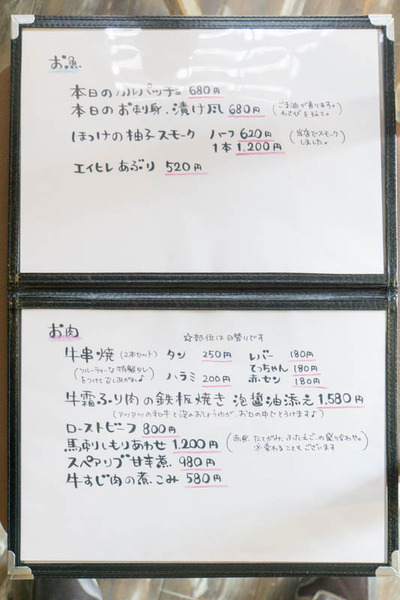 お魚
本日のカルパッチョ 680円
本日のお刺身、漬け風 680円 (ごま油が香ります。わさびをそえて。)
ほっけの柚子スモーク ハーフ 620円
1本 1,200円 (当店でスモークしました。)
エイヒレあぶり 520円
お肉 ☆部位は日替りです
牛串焼 (2本セット) タン 250円 レバー 180円
(フルーティーな特製タレをつけて召しあがれ♪) ハラミ 200円 てっちゃん 180円
ホーセン 180円
牛霜ふり肉の鉄板焼き 泡醤油添え 1,580円
(アツアツの和牛と泡のおしょうゆが、お口の中でとろけます♪)
ローストビーフ 800円
馬刺しもりあわせ 1,200円 (赤身、たてがみ、ふたえごの盛り合わせ。変わることもございます)
スペアリブ甘辛煮 980円
牛すじ肉の煮こみ 580円